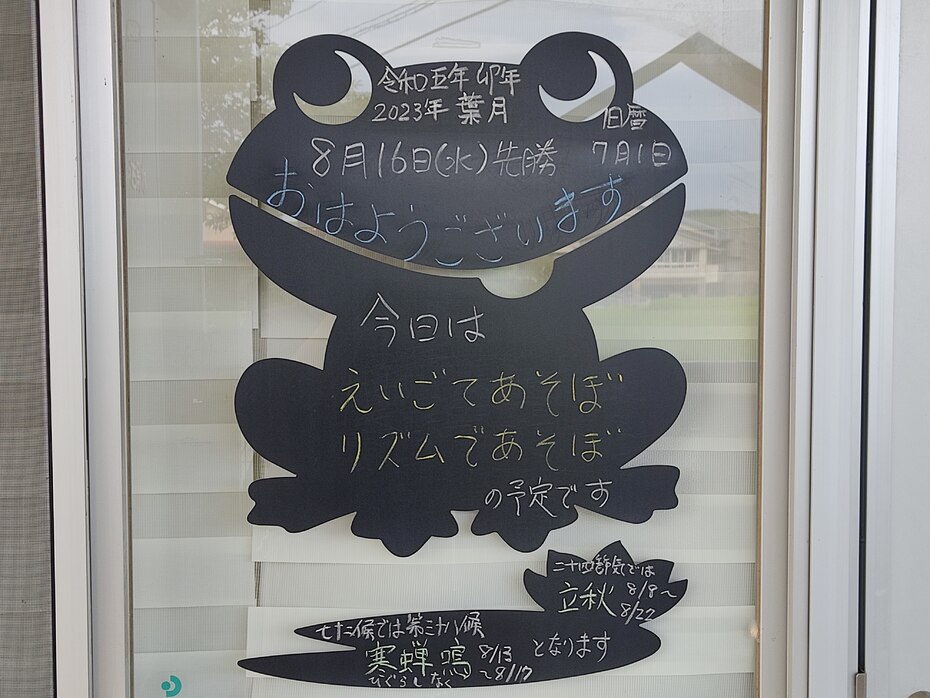 令和五年 卯年
2023年 葉月
旧暦
8月16日(水)先勝 7月1日
おはようございます
今日は
えいごてあそぼ
リズムであそぼ
の予定です
二十四節気では
立秋 8/8~
8/22
七十二候では第三十八候
寒蝉鳴 8/13
~8/17
となります
ひぐらしなく